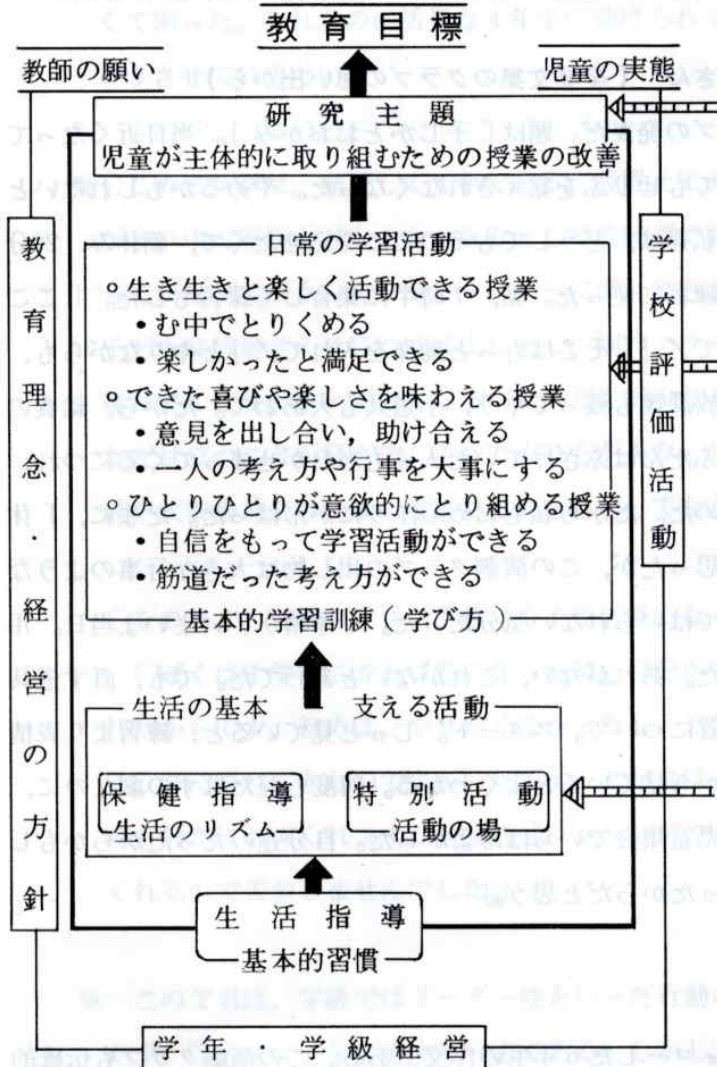 教育目標
教師の願い
児童の実態
研究主題
児童が主体的に取り組むための授業の改善
日常の学習活動
○生き生きと楽しく活動できる授業
・む中でとりくめる
・楽しかったと満足できる
○できた喜びや楽しさを味わえる授業
・意見を出し合い，助け合える
・一人の考え方や行事を大事にする
○ひとりひとりが意欲的にとり組める授業
・自信をもって学習活動ができる
・筋道だった考え方ができる
基本的学習訓練（学び方）
生活の基本
支える活動
保健指導
生活のリズム
特別活動
活動の場
生活指導
基本的習慣
教育理念・経営の方針
学校評価活動
学年・学級経営